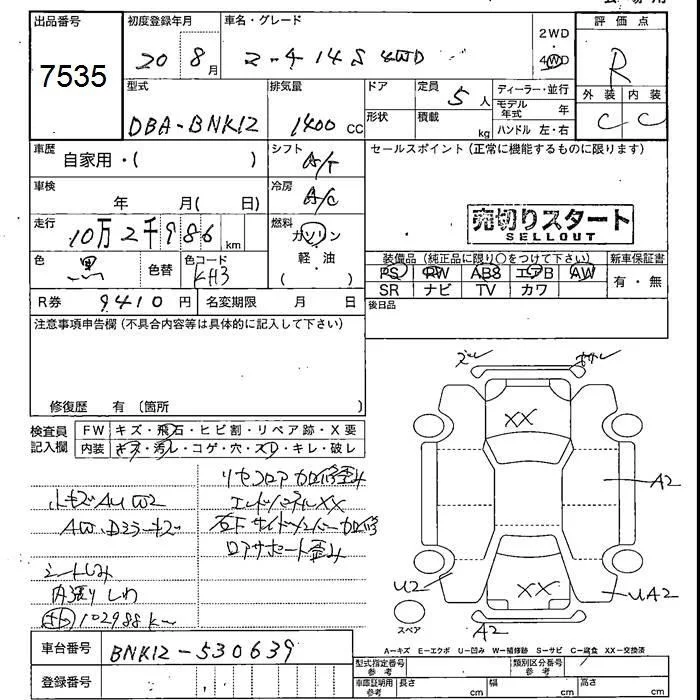 出品番号
7535
初度登録年月
20 8月
車名・グレード
2WD
4WD
評価点
R
型式
DBA-BNK12
排気量
1400 cc
ドア
定員
5人
ディーラー・並行
モデル年式 年
外装 内装
C C
形状
積載
kg
ハンドル 左・右
車歴
自家用・( )
シフト
A/T
セールスポイント(正常に機能するものに限ります)
車検
年 月( 日)
冷房
A/C
走行
10万2千986 km
燃料
ガソリン
軽・油
( )
売切りスタート
SELLOUT
色
黒
色替
色コード
KH3
装備品(純正品に限り○をつけて下さい)
新車保証書
PS PW ABS エアB AW
SR ナビ TV カワ
有・無
R券 9410円
名変期限 月 日
後日品
注意事項申告欄(不具合内容等は具体的に記入して下さい)
修復歴 有(箇所 )
検査員記入欄
FW キズ・飛石・ヒビ割・リペア跡・X要
内装 キズ・汚レ・コゲ・穴・スレ・キレ・破レ
小キズAUW2
AW.Dミラーキズ
シートしみ
内張りしわ
102988k
リヤフロア加修歪み
エンドパネルXX
右下サイドメンバー加修
ロアサポート歪み
XX
A2
XX
U2
UA2
A2
スペア
A-キズ E-エクボ U-凹み W-補修跡 S-サビ C-腐食 XX-交換済
車台番号
BNK12-530639
登録番号
型式指定番号 参考
類別区分番号 参考
車庫証明用 参考
長さ cm
幅 cm
高さ cm